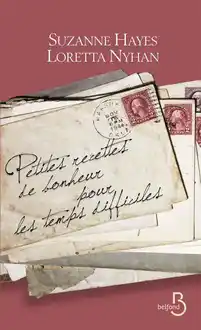 SUZANNE HAYES
LORETTA NYHAN
Petites recettes
de bonheur
pour
les temps difficiles
belfond
B